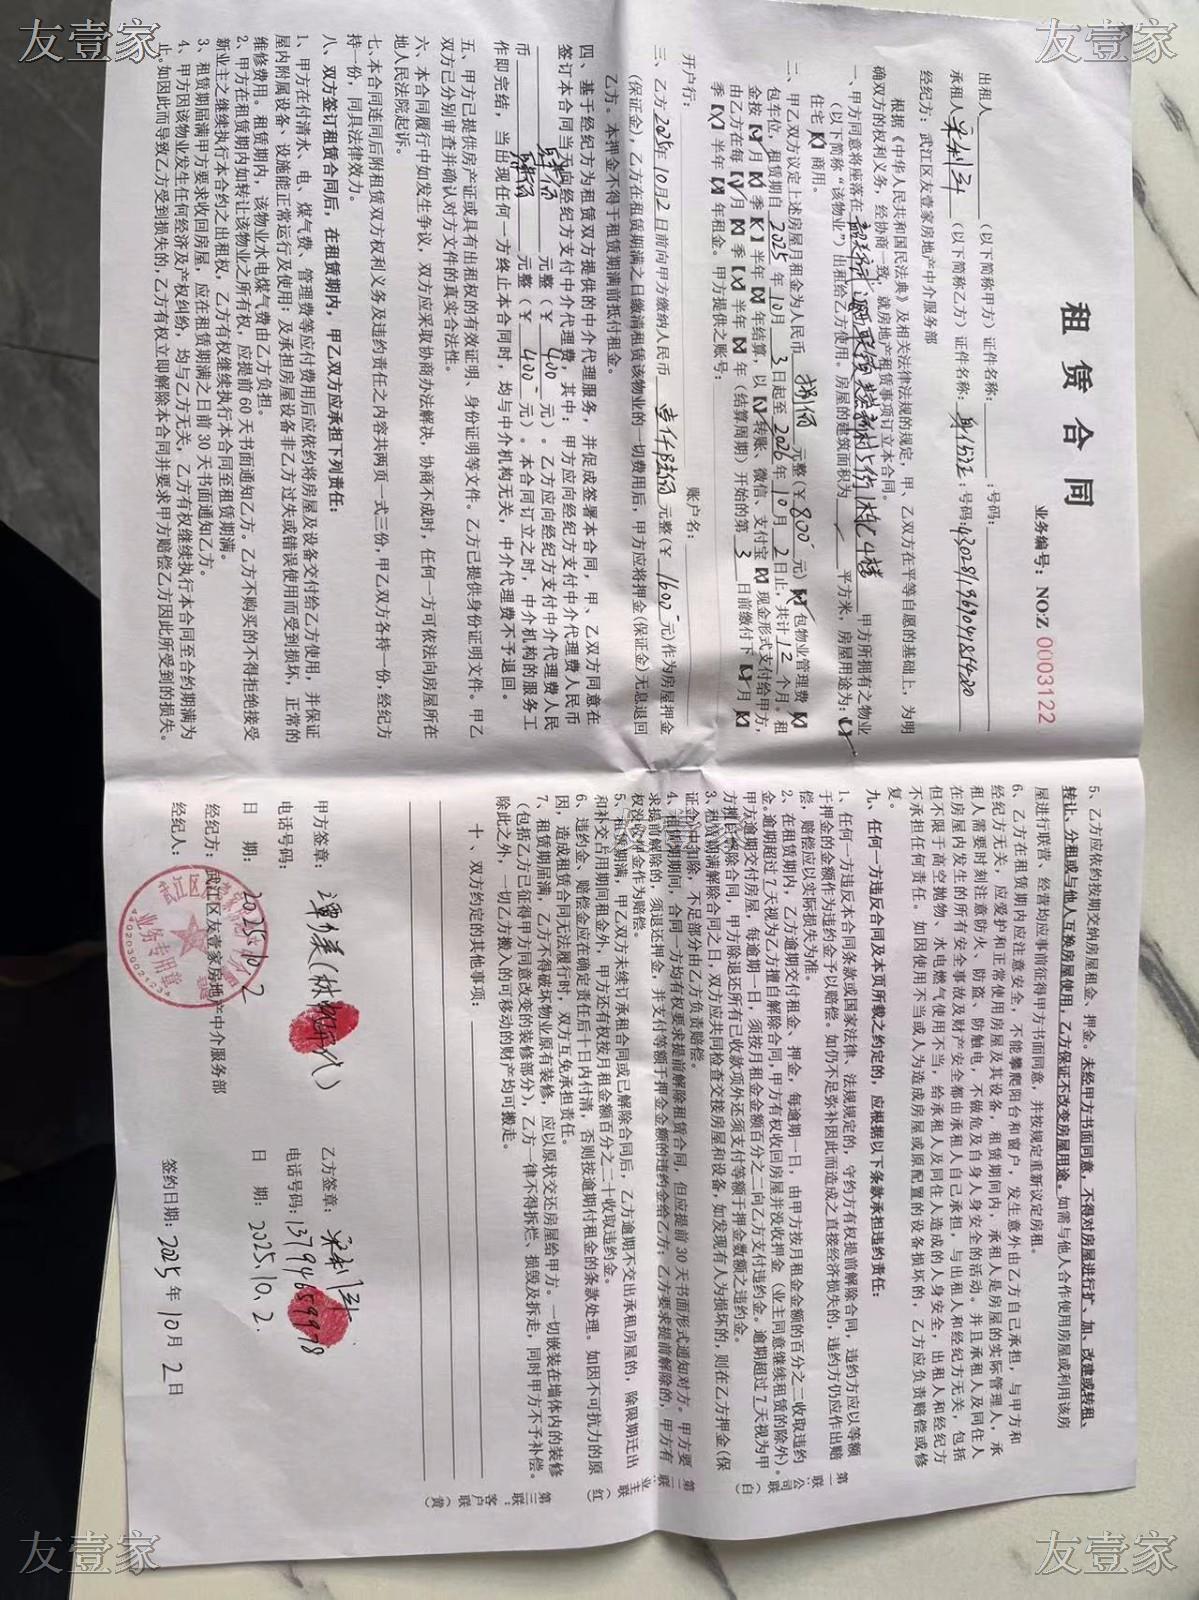 友壹家
友壹家
租赁合同
业务编号：NO:Z 0003122
出租人（以下简称甲方）证件名称：：号码：
承租人（以下简称乙方）证件名称：身份证：号码：
经纪方：武江区友壹家房地产中介服务部
根据《中华人民共和国民法典》及相关法律法规的规定，甲、乙双方在平等自愿的基础上，为明
确双方的权利义务，经协商一致，就房地产租赁事项订立本合同。
一、甲方同意将座落在 甲方所拥有之物业
（以下简称“该物业”）出租给乙方使用。房屋的建筑面积为 平方米，房屋用途为：【】
住宅【】商用。
二、甲乙双方议定上述房屋月租金为人民币 捌佰 元整（¥ 800 元）【】包物业管理费【】
包车位，租赁期自 2025 年 10 月 3 日起至 2026 年 10 月 2 日止，共计 12 个月。租
金按【】月【】季【】半年【】年结算，以【】转账、微信、支付宝【】现金形式支付给甲方，
由乙方在每【】月【】季【】半年【】年（结算周期）开始的第 3 日前缴付下【】月【】
季【】半年【】年租金。甲方提供之账号：
开户行： 账户名：
三、乙方 2025 年 10 月 2 日前向甲方缴纳人民币 壹仟陆佰 元整（¥ 1600 元）作为房屋押金
（保证金），乙方在租赁期满之日缴清租赁该物业的一切费用后，甲方应将押金（保证金）无息退回
乙方。本押金不得于租赁期满前抵付租金。
四、基于经纪方为租赁双方提供的中介代理服务，并促成签署本合同，甲、乙双方同意在
签订本合同当天向经纪方支付中介代理费，其中：甲方应向经纪方支付中介代理费人民币
肆佰 元整（¥ 400 元）。乙方应向经纪方支付中介代理费人民
币 肆佰 元整（¥ 400 元）。本合同订立之时，中介机构的服务工
作即完结，当出现任何一方终止本合同时，均与中介机构无关，中介代理费不予退回。
五、甲方已提供房产证或具有出租权的有效证明、身份证明等文件。乙方已提供身份证明文件。甲乙
双方已分别审查并确认对方文件的真实合法性。
六、本合同履行中如发生争议，双方应采取协商办法解决，协商不成时，任何一方可依法向房屋所在
地人民法院起诉。
七、本合同连同后附租赁双方权利义务及违约责任之内容共两页一式三份，甲乙双方各持一份，经纪方
持一份，同具法律效力。
八、双方签订租赁合同后，在租赁期内，甲乙双方应承担下列责任：
1、甲方在付清水、电、煤气费、管理费等应付费用后应依约将房屋及设备交付给乙方使用，并保证
屋内附属设备、设施能正常运行及使用；及承担房屋设备非乙方过失或错误使用而受到损坏，正常的
维修费用。租赁期内，该物业水电煤气费由乙方负担。
2、甲方在租赁期内如转让该物业之所有权，应提前 60 天书面通知乙方。乙方不购买的不得拒绝接受
新业主之继续执行本合约之出租权，乙方有权继续执行本合同至租赁期满。
3、租赁期届满甲方要求收回房屋，应在租赁期满之日前 30 天书面通知乙方。
4、甲方因该物业发生任何经济及产权纠纷，均与乙方无关，乙方有权继续执行本合同至合约期满为
止。如因此而导致乙方受到损失的，乙方有权立即解除本合同并要求甲方赔偿乙方因此所受到的损失。
5、乙方应依约按期交纳房屋租金、押金。未经甲方书面同意，不得对房屋进行扩、加、改建或转租、
转让、分租或与他人互换房屋使用，乙方保证不改变房屋用途。如需与他人合作使用房屋或利用该房
屋进行联营，经营均应事前征得甲方书面同意，并按规定重新议定房租。
6、乙方在租赁期内应注意安全，不能攀爬阳台和窗户，发生意外由乙方自己承担，与甲方和
经纪方无关，应爱护和正常使用房屋及其设备，租赁期间内，承租人是房屋的实际管理人，承
租人需要时刻注意防火、防盗、防触电，不做危及自身人身安全的活动。并且承租人及同住人
在房屋内发生的所有安全事故及财产安全都由承租人自己承担，与出租人和经纪方无关，包括
但不限于高空抛物、水电燃气使用不当，给承租人及同住人造成的人身安全，出租人和经纪方
不承担任何责任。如因使用不当或人为造成房屋或原配置的设备损坏的，乙方应负责赔偿或修
复。
九、任何一方违反合同及本页所载之约定的，应根据以下条款承担违约责任：
1、任何一方违反本合同条款或国家法律、法规规定的，守约方有权提前解除合同，违约方应以等额
于押金的金额作为违约金予以赔偿。如仍不足弥补因此而造成之直接经济损失的，违约方仍应作出赔
偿，赔偿应以实际损失为准。
2、在租赁期内，乙方逾期交付租金、押金，每逾期一日，由甲方按月租金金额的百分之二收取违约
金。逾期超过 7 天视为乙方擅自解除合同，甲方有权收回房屋并没收押金（业主同意继续租赁的除外）。
甲方逾期交付房屋，每逾期一日，须按月租金金额百分之二向乙方支付违约金。逾期超过 7 天视为甲
方擅自解除合同，甲方除退还所有已收款项外还须支付等额于押金数额之违约金。
3、租赁期满解除合同之日，双方应共同检查交接房屋和设备，如发现有人为损坏的，则在乙方押金（保
证金）中扣除，不足部分由乙方负责赔偿。
4、租赁期期间，合同一方均有权要求提前解除租赁合同，但应提前 30 天书面形式通知对方。甲方要
求提前解除的，须退还押金，并支付等额于押金金额的违约金给乙方；乙方要求提前解除的，甲方有
权没收押金作为赔偿。
5、租赁期满，甲乙双方未续订承租合同或已解除合同后，乙方逾期不交出承租房屋的，除限期迁出
和补交占用期间租金外，甲方还有权按月租金额百分之二十收取违约金。
6、违约金、赔偿金应在确定责任后十日内付清，否则按逾期付租金的条款处理。如因不可抗力的原
因，造成租赁合同无法履行时，双方互免承担责任。
7、租赁期届满，乙方不得破坏物业原有装修，应以原状交还房屋给甲方。一切嵌装在墙体内的装修
（包括乙方已征得甲方同意改变的装修部分），乙方一律不得拆烂、损毁及拆走，同时甲方不予补偿。
除此之外，一切乙方搬入的可移动的财产均可搬走。
十、双方约定的其他事项：
第一联：公司联（白）
第二联：业主联（红）
第三联：客户联（黄）
甲方签章： 乙方签章：
电话号码： 电话号码：13794659978
日 期：2025.10.2 日 期：2025.10.2.
经纪方：武江区友壹家房地产中介服务部
经纪人： 签约日期：2025 年 10 月 2 日
业务专用章
友壹家
友壹家